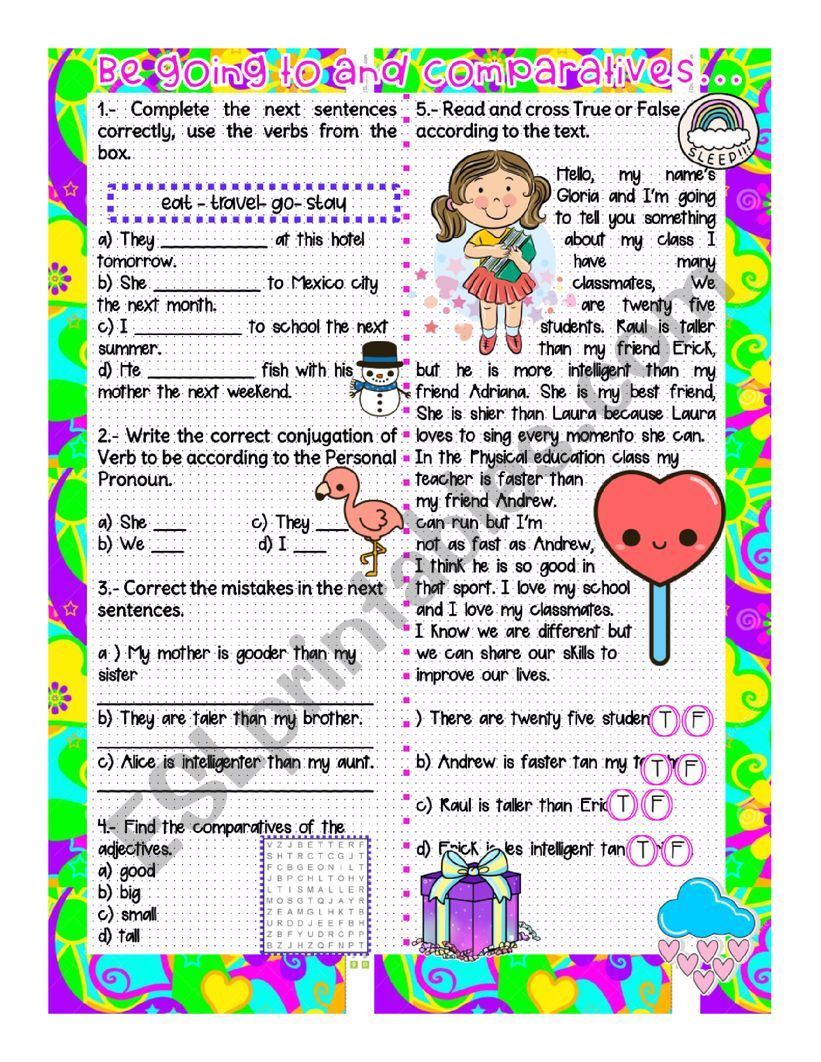 Be going to and comparatives...
1.- Complete the next sentences
correctly, use the verbs from the
box.
eat - travel- go- stay
a) They ____________ at this hotel
tomorrow.
b) She ____________ to Mexico city
the next month.
c) I ____________ to school the next
summer.
d) He ____________ fish with his
mother the next weekend.
2.- Write the correct conjugation of
Verb to be according to the Personal
Pronoun.
a) She ____ c) They ____
b) We ____ d) I ____
3.- Correct the mistakes in the next
sentences.
a ) My mother is gooder than my
sister
b) They are taler than my brother.
c) Alice is intelligenter than my aunt.
4.- Find the comparatives of the
adjectives.
a) good
b) big
c) small
d) tall
VZJBETTERF
SHTRCTCGJT
FCBGEONILT
JBPCHLTOHV
LTISMALLER
MOSGTQJAYR
ZEAMGLHKTB
URDDJEEFBH
ZBFYUDRCPP
BZJHZQFNPT
5.- Read and cross True or False
according to the text.
SLEEP!!!
Hello, my name's
Gloria and I'm going
to tell you something
about my class I
have many
classmates, We
are twenty five
students. Raul is taller
than my friend Erick,
but he is more intelligent than my
friend Adriana. She is my best friend,
She is shier than Laura because Laura
loves to sing every momento she can.
In the Physical education class my
teacher is faster than
my friend Andrew.
can run but I'm
not as fast as Andrew,
I think he is so good in
that sport. I love my school
and I love my classmates.
I Know we are different but
we can share our skills to
improve our lives.
) There are twenty five studen T F
b) Andrew is faster tan my T F
c) Raul is taller than Eric T F
d) Erick is les intelligent tan T F
ESLprintables.com